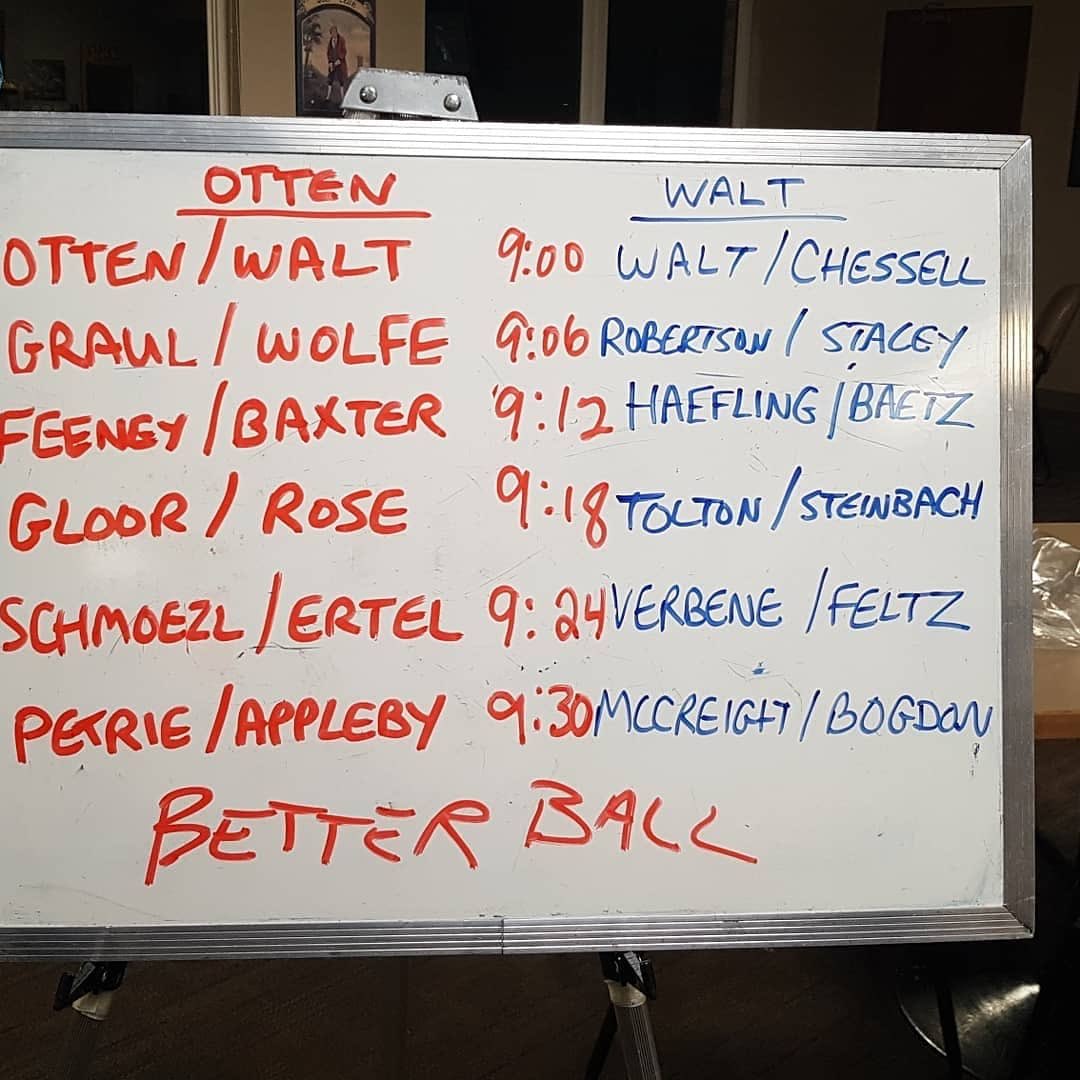 OTTEN WALT
OTTEN/WALT 9:00 WALT/CHESSELL
GRAUL/WOLFE 9:06 ROBERTSON/STACEY
FEENEY/BAXTER 9:12 HAEFLING/BAETZ
GLOOR/ROSE 9:18 TOLTON/STEINBACH
SCHMOEZL/ERTEL 9:24 VERBENE/FELTZ
PETRIE/APPLEBY 9:30 MCCREIGHT/BOGDON
BETTER BALL